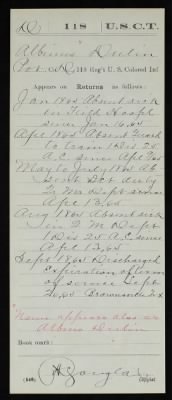 D 118 U.S.C.T.
Albinus Durbin
Pvt., Co. D, 118 Reg't U. S. Colored Inf.
Appears on Returns as follows:
Jan 1865 Absent sick
in Field Hosptl
since Jan
Apl 1865 Absent Guard
to train 1 Div 25
A.C. since Apl
May to July 1865 Ab
sent Det. duty
Q Mr Dept since
Apl 13, 65
Aug 1865 Absent sick
in Q M Dept
1 Div 25 A.C. since
Apl 13, 65
Sept 1865 Discharged
Expiration of term
of service Sept
65 Brownsville Tx
"Name appears also as
Albin Durbin
Book mark:
Douglas
(546) Copyist.